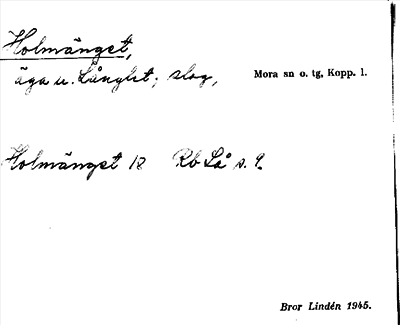 Holmänget,
äga u. Långlet; slog,
Mora sn o. tg, Kopp. l.
Holmänget 12 Rb Lå s. 9.
Bror Lindén 1945.